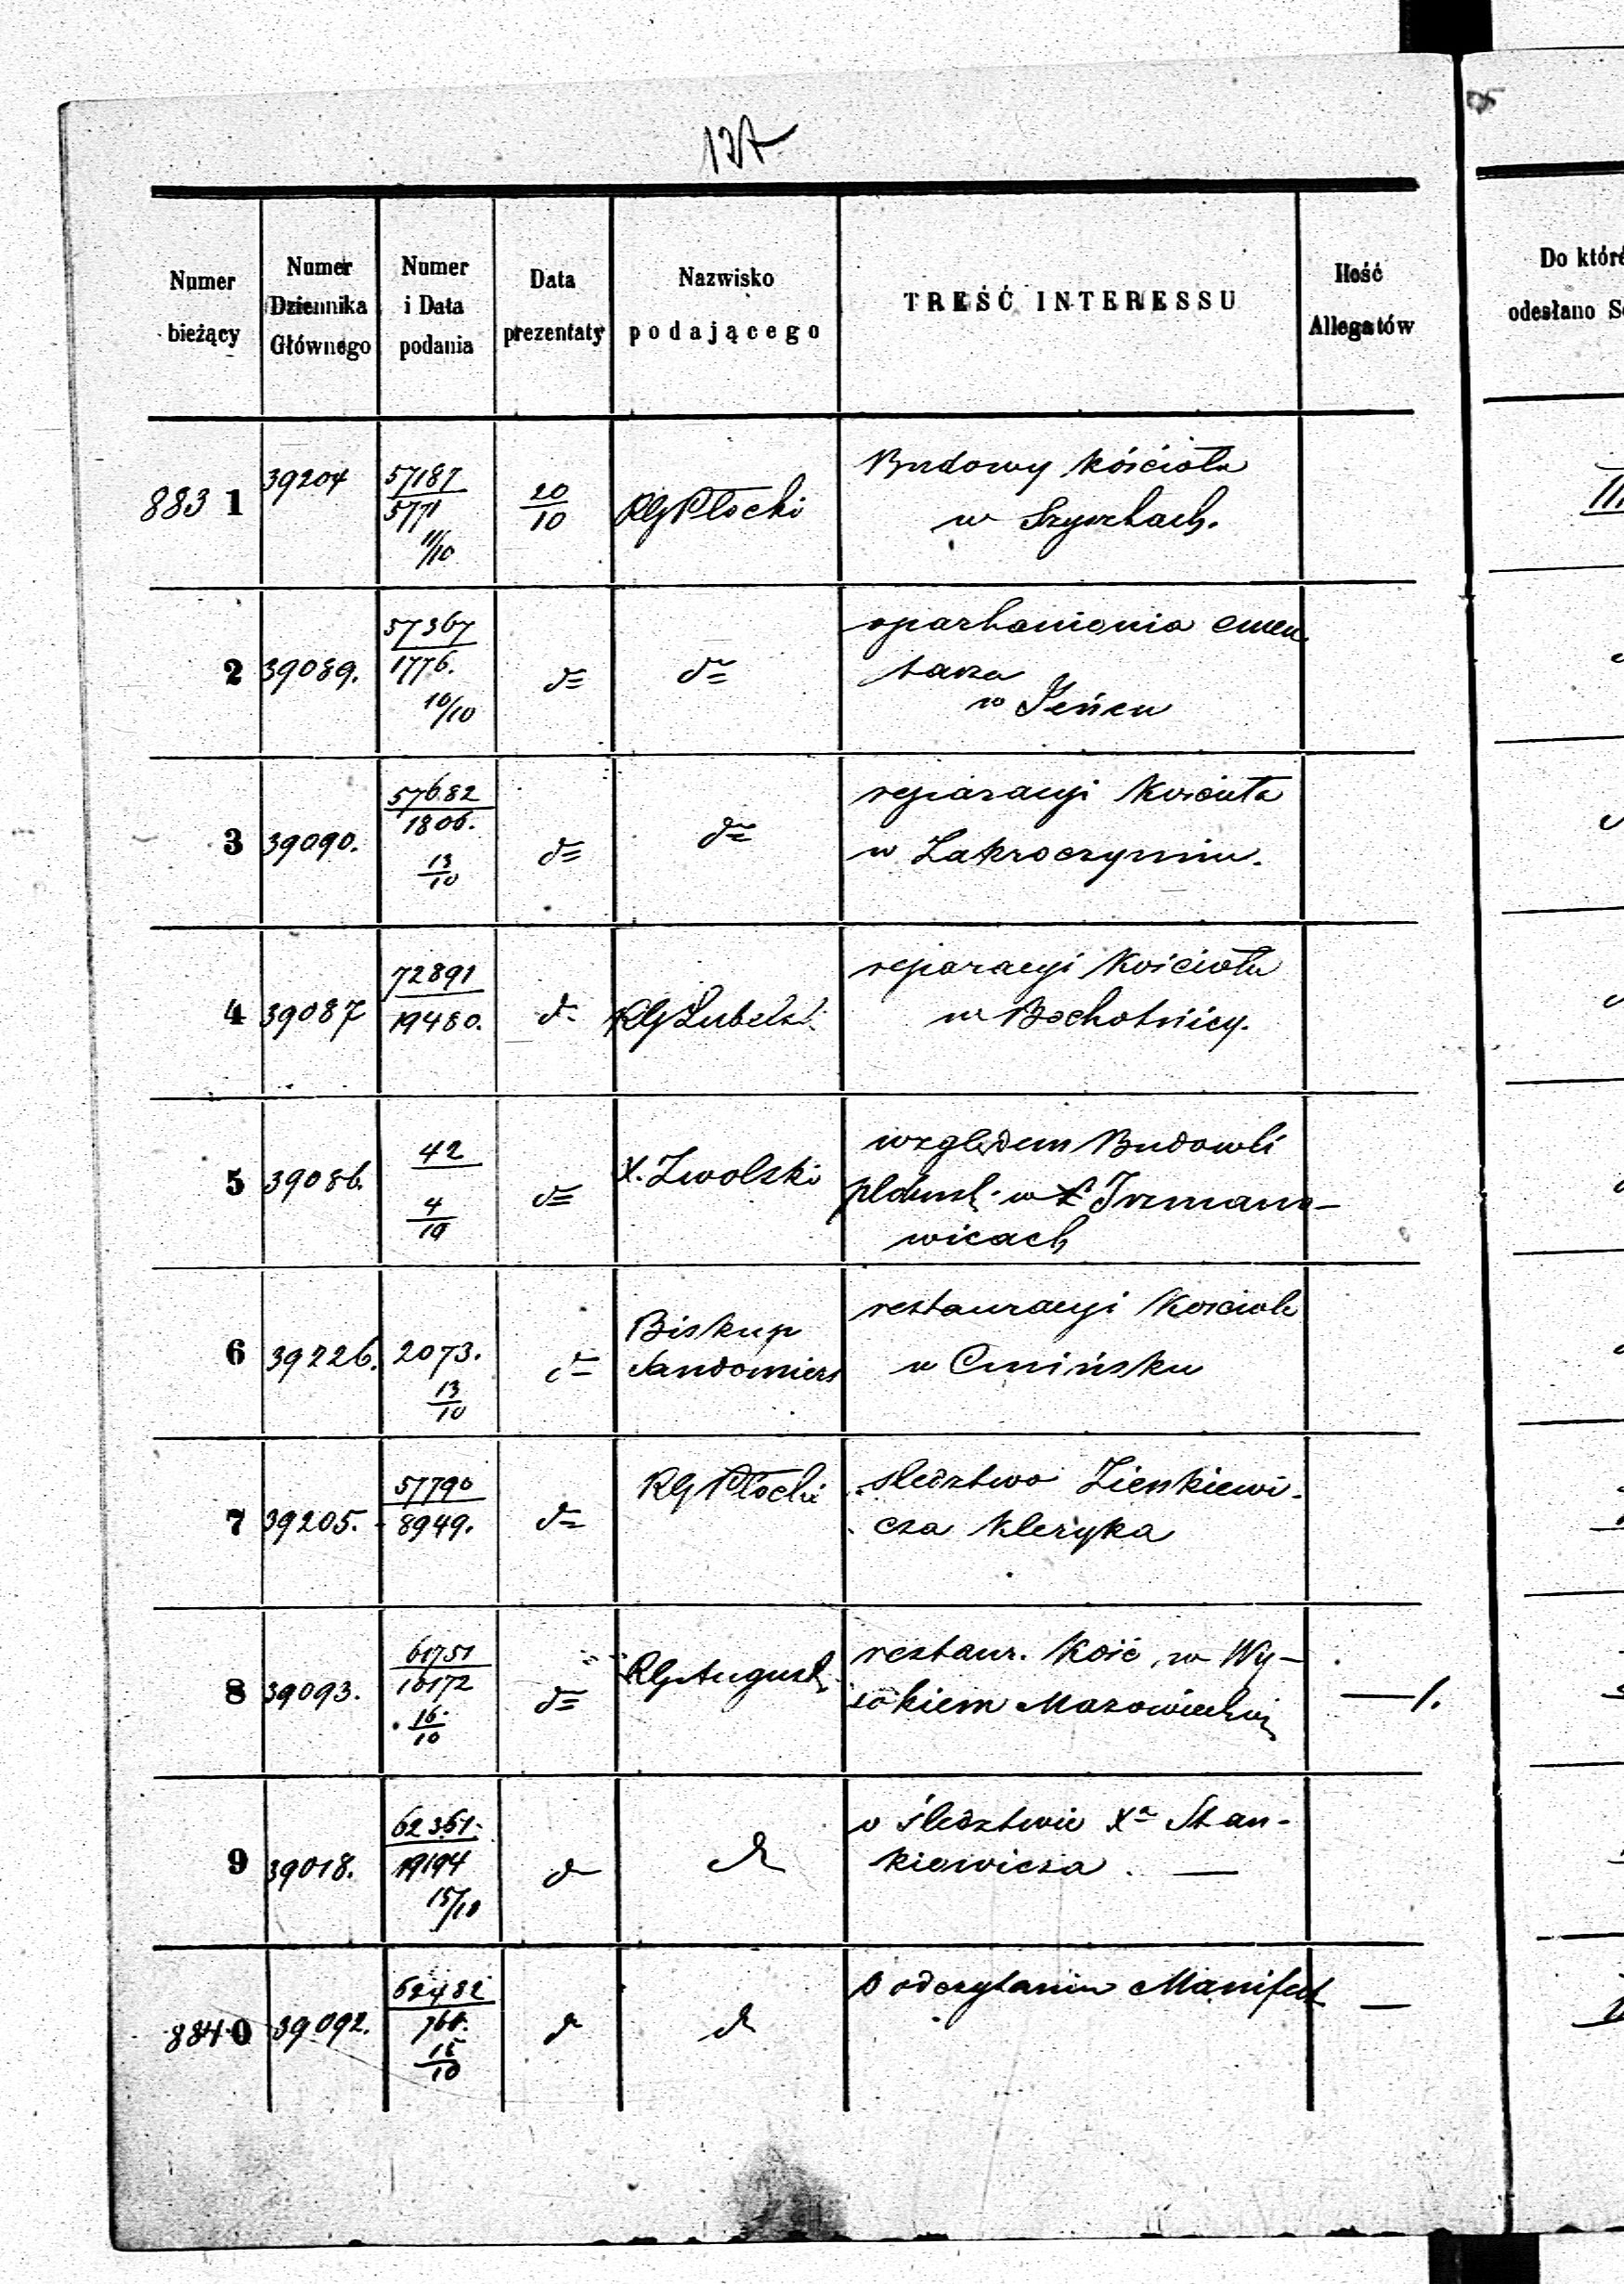 127
Numer bieżący
Numer Dziennika Głównego
Numer i Data podania
Data prezentaty
Nazwisko podającego
TREŚĆ INTERESSU
Ilość Allegatów
Do któré
odesłano Se
883 1
39204
57187
5771
11/10
20/10
RG Płocki
Budowy kościoła
w
2
39089.
57367
1776.
10/10
d=
d=
oparkanienia cmen
tarza
w
3
39090.
57682
1806.
13/10
d=
d=
reparacyi Kościoła
w Zakroczymiu.
4
39087
72891
19480.
d.
RG Lubelski
reparacyi Kościoła
w Bochotnicy.
5
39086.
42
4/10
d=
X. Zwolski
względem Budowli
w Irzmano-
wicach
6
39226.
2073.
13/10
d=
Biskup
Sandomiers
restauracyi Kościoła
w Cmińsku
7
39205.
57790
8949.
d=
RG Płocki
sledztwo Zienkiewi-
cza Kleryka
8
39093.
61751
10172
16/10
d=
RG August.
restaur. Kość. w Wy-
sokiem Mazowieckim
1.
9
39018.
62361.
19194
15/10
d
d
o śledztwie Xa Stan-
kiewicza. —
884 0
39092.
62482
760.
15/10
d
d
o odczytaniu Manifest
—